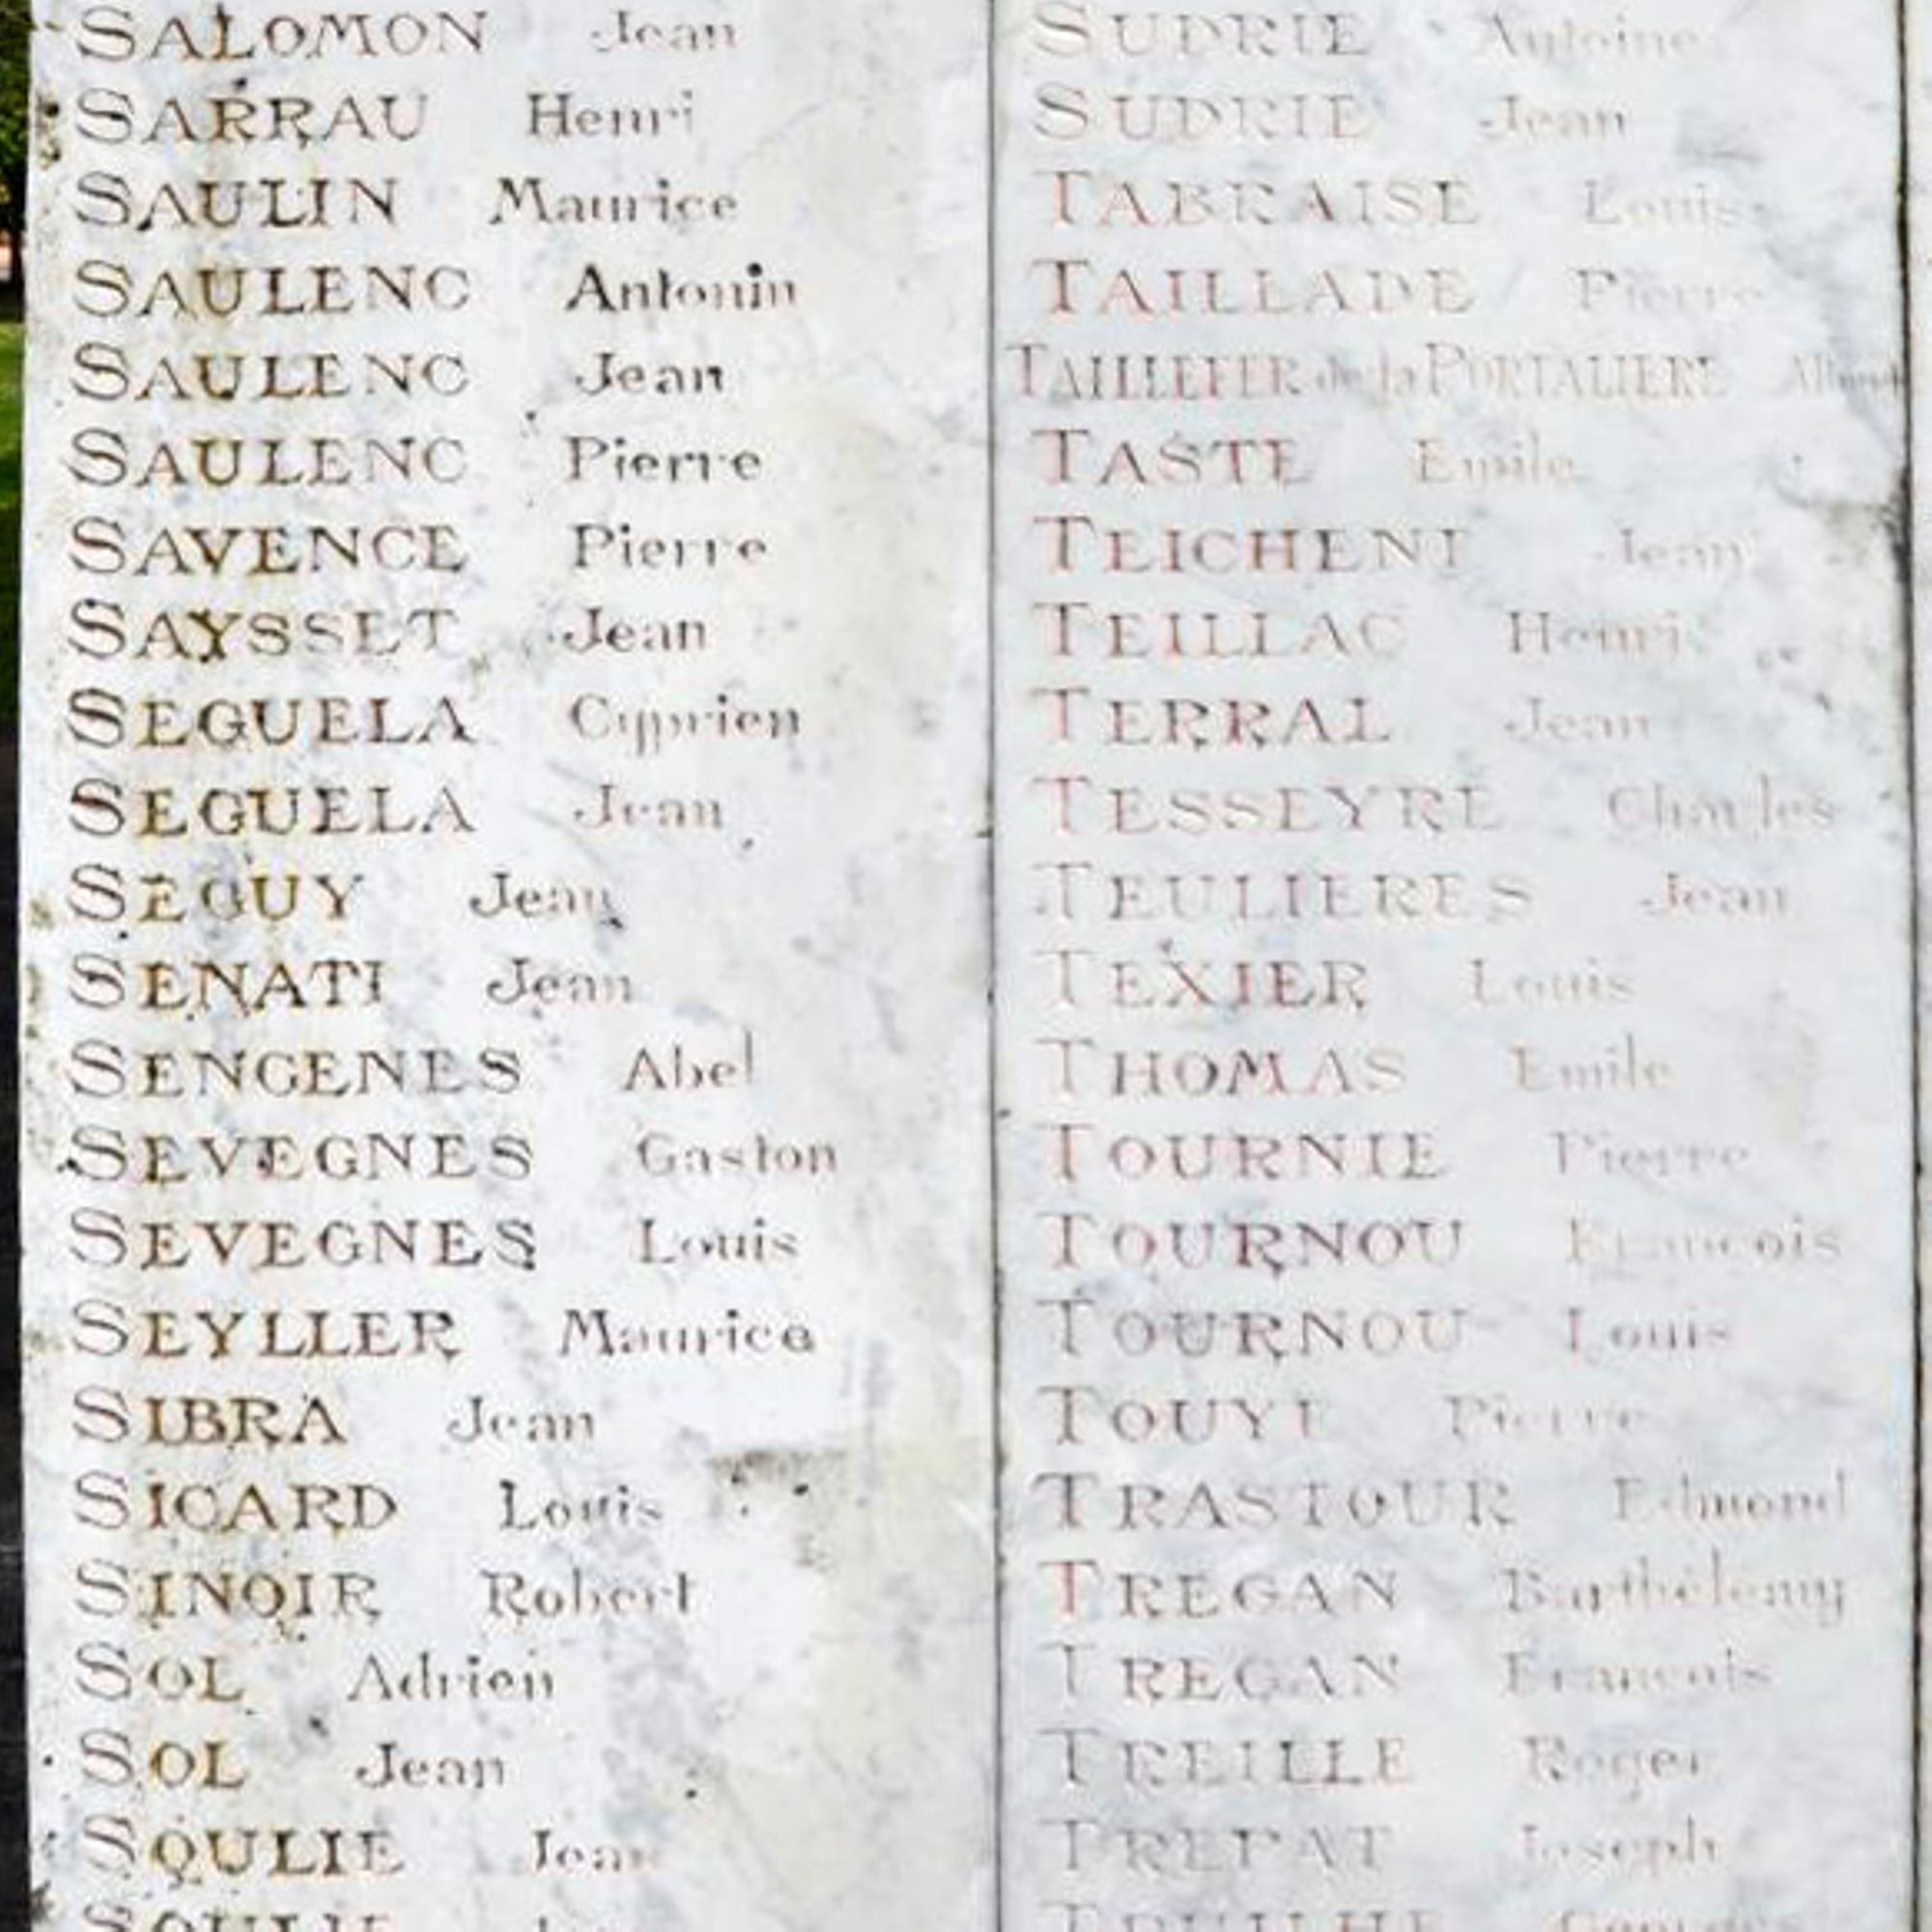 SALOMON Jean
SARRAU Henri
SAULIN Maurice
SAULENC Antonin
SAULENC Jean
SAULENC Pierre
SAVENCE Pierre
SAYSSET Jean
SEGUELA Cyprien
SEGUELA Jean
SEGUY Jean
SENATI Jean
SENGENES Abel
SEVEGNES Gaston
SEVEGNES Louis
SEYLLER Maurice
SIBRA Jean
SICARD Louis
SINOIR Robert
SOL Adrien
SOL Jean
SOULIE Jean
SOULIE
SUDRIE Antoine
SUDRIE Jean
TABRAISE Louis
TAILLADE Pierre
TAILLEFER de la PORTALIERE
TASTE Emile
TEICHENT Jean
TEILLAC Henri
TERRAL Jean
TESSEYRE Charles
TEULIERES Jean
TEXIER Louis
THOMAS Emile
TOURNIE Pierre
TOURNOU François
TOURNOU Louis
TOUYE Pierre
TRASTOUR Edmond
TREGAN Barthélemy
TREGAN François
TREILLE Roger
TREPAT Joseph